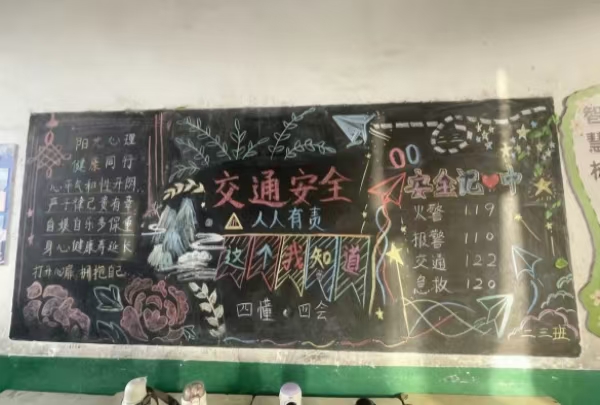 阳光心理
健康同行
心平气和性开朗
严于律己责有荣
自娱自乐多保重
身心健康寿延长
打开心扉 拥抱自己
交通安全
人人有责
这个我知道
四懂·四会
安全记❤中
火警 119
报警 110
交通 122
急救 120
二三班
智慧